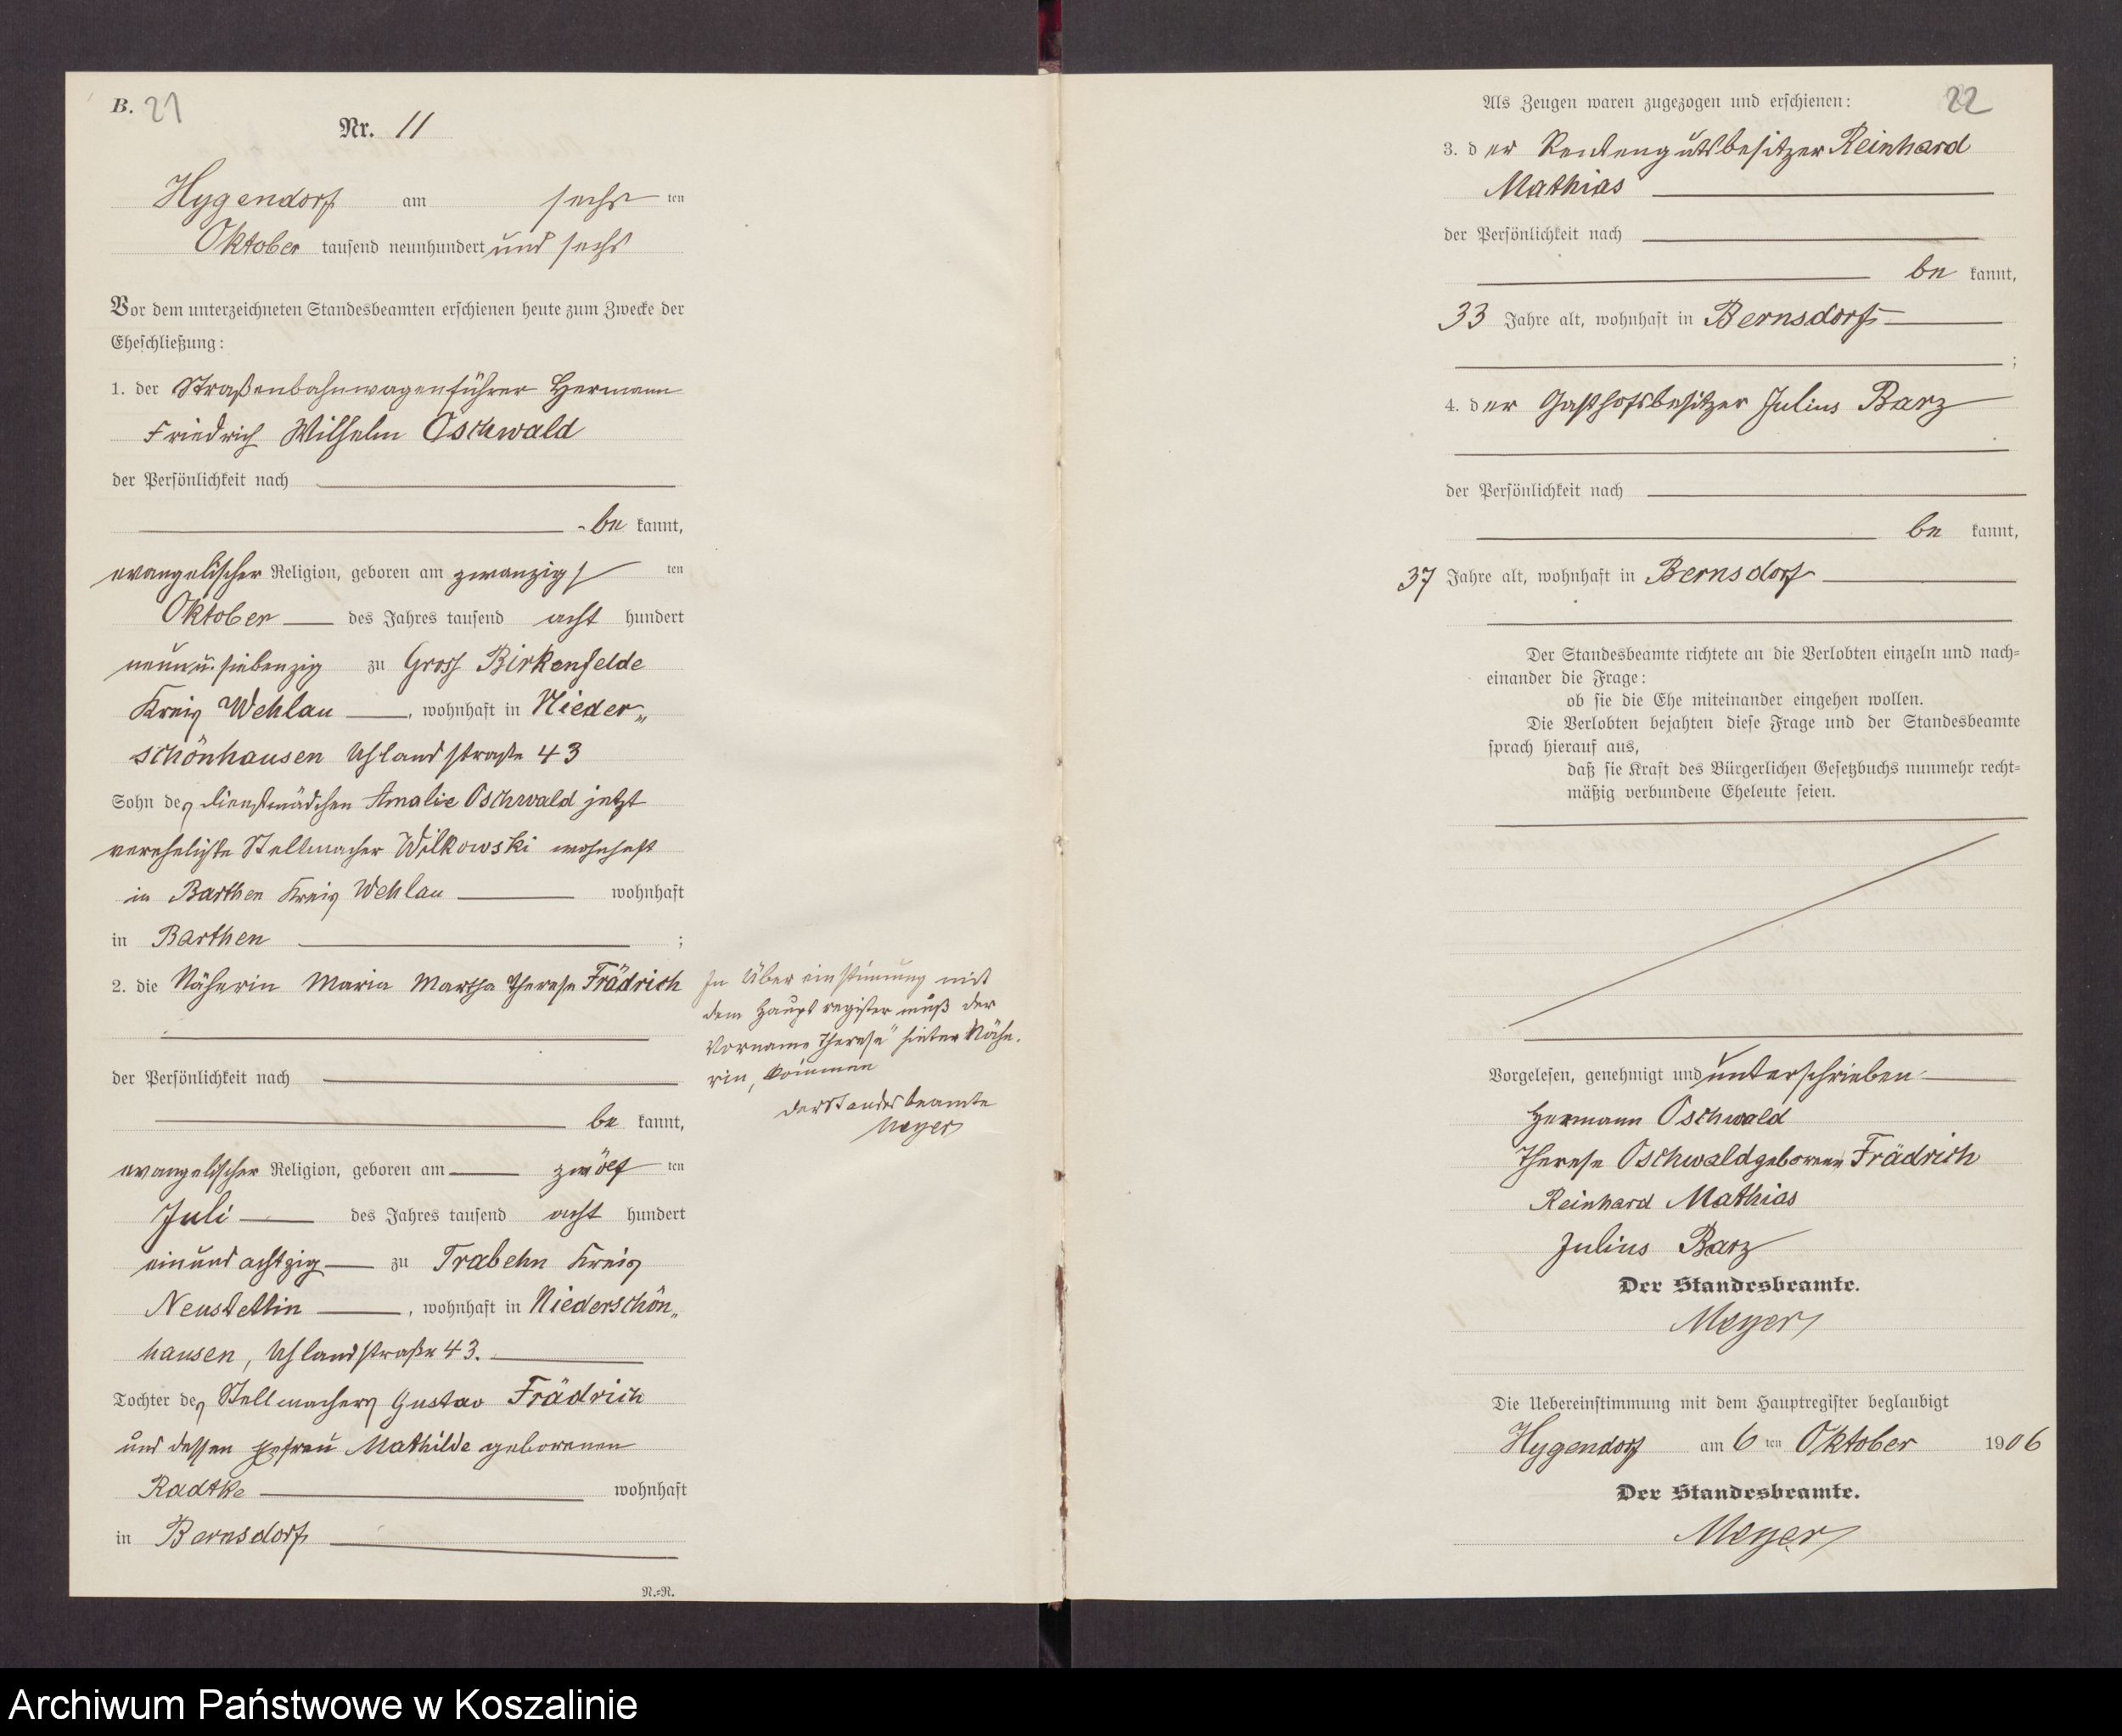 B. 21
Nr. 11
Hygendorf am sechs ten
Oktober tausend neunhundert und sechs
Vor dem unterzeichneten Standesbeamten erschienen heute zum Zwecke der
Eheschließung:
1. der Straßenbahnwagenführer Hermann
Friedrich Wilhelm Oschwald
der Persönlichkeit nach
be kannt,
evangelischer Religion, geboren am zwanzigs ten
Oktober des Jahres tausend acht hundert
neun u. siebenzig zu Gross Birkenfelde
Kreis Wehlau, wohnhaft in Nieder„
schönhausen Uhlandstraße 43
Sohn des Dienstmädchen Amalie Oschwald jetzt
verehelichte Stellmacher Wilkowski wohnhaft
in Barthen Kreis Wehlau wohnhaft
in Barthen ;
2. die Näherin Maria Martha Therese Frädrich
der Persönlichkeit nach
be kannt,
evangelischer Religion, geboren am zwölf ten
Juli des Jahres tausend acht hundert
einund achtzig zu Trabehn Kreis
Neustettin, wohnhaft in Niederschön„
hausen, Uhlandstraße 43.
Tochter des Stellmachers Gustav Frädrich
und dessen Ehefrau Mathilde geborenen
Radtke wohnhaft
in Bernsdorf
N.=N.
In Übereinstimmung mit
dem Hauptregister muß der
Vorname „Therese“ hinter Nähe-
rin, kommen
Der Standesbeamte
Meyer
22
Als Zeugen waren zugezogen und erschienen:
3. der Rentengutsbesitzer Reinhard
Mathias
der Persönlichkeit nach
be kannt,
33 Jahre alt, wohnhaft in Bernsdorf
;
4. der Gasthofsbesitzer Julius Barz
der Persönlichkeit nach
be kannt,
37 Jahre alt, wohnhaft in Bernsdorf
Der Standesbeamte richtete an die Verlobten einzeln und nach=
einander die Frage:
ob sie die Ehe miteinander eingehen wollen.
Die Verlobten bejahten diese Frage und der Standesbeamte
sprach hierauf aus,
daß sie Kraft des Bürgerlichen Gesetzbuchs nunmehr recht=
mäßig verbundene Eheleute seien.
Vorgelesen, genehmigt und unterschrieben
Hermann Oschwald
Therese Oschwald geborene Frädrich
Reinhard Mathias
Julius Barz
Der Standesbeamte.
Meyer
Die Uebereinstimmung mit dem Hauptregister beglaubigt
Hygendorf am 6 ten Oktober 1906
Der Standesbeamte.
Meyer
Archiwum Państwowe w Koszalinie